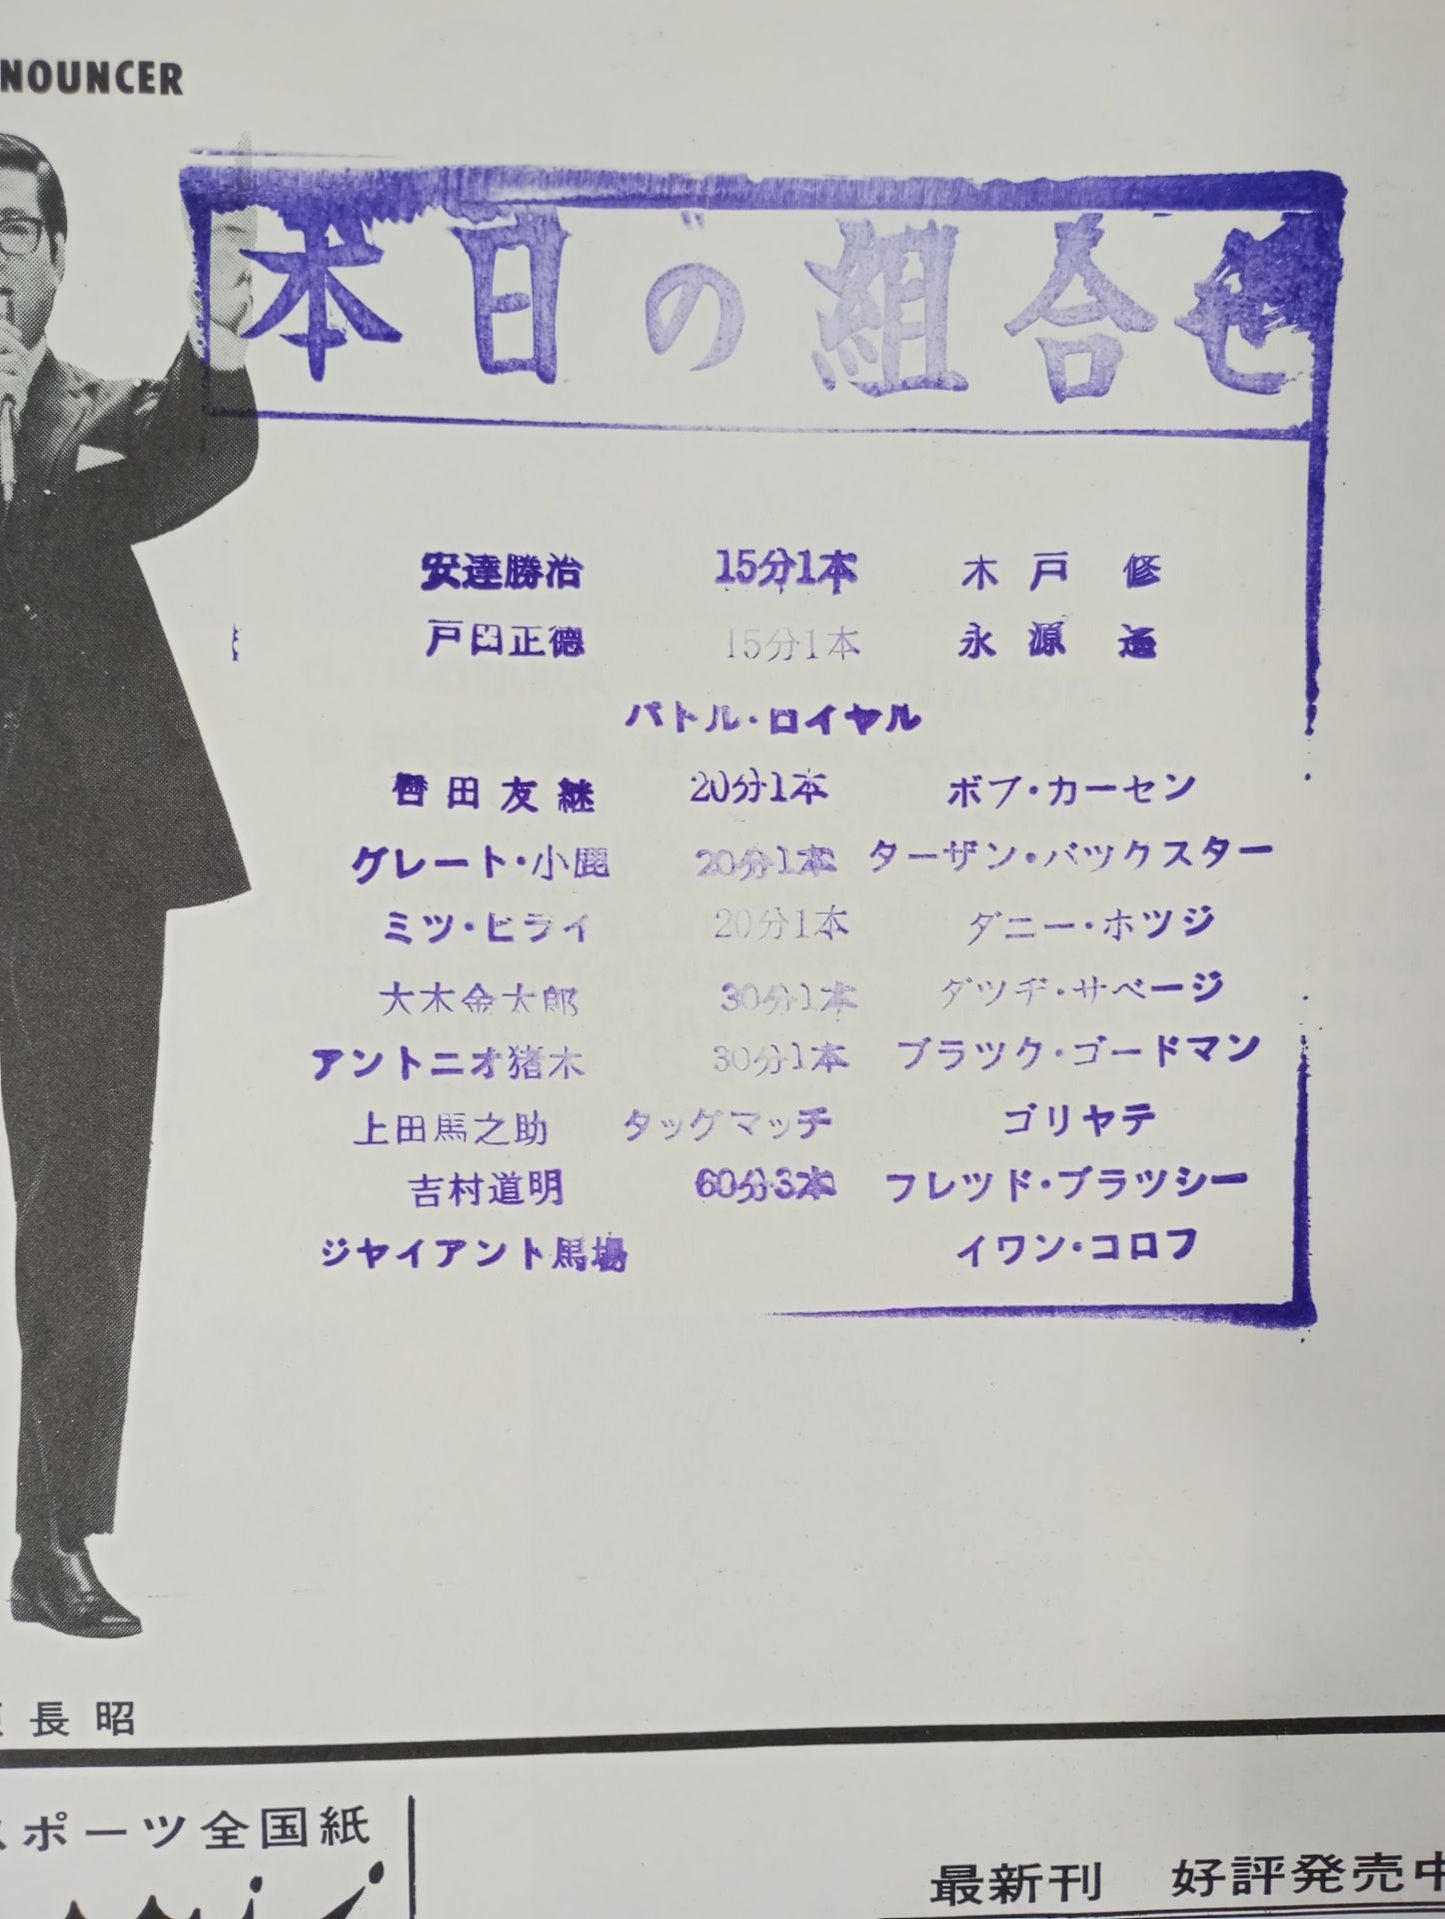 NOUNCER
本日の組合せ
安達勝治 15分1本 木戸修
戸田正徳 15分1本 永源遙
バトル・ロイヤル
田友継 20分1本 ボブ・カーセン
グレート・小鹿 20分1本 ターザン・バツクスター
ミツ・ヒライ 20分1本 ダニー・ホツジ
大木金太郎 30分1本 ダツヂ・サベージ
アントニオ猪木 30分1本 ブラツク・ゴードマン
上田馬之助 タッグマッチ ゴリヤテ
吉村道明 60分3本 フレツド・ブラツシー
ジヤイアント馬場 イワン・コロフ
長昭
スポーツ全国紙
最新刊 好評発売中